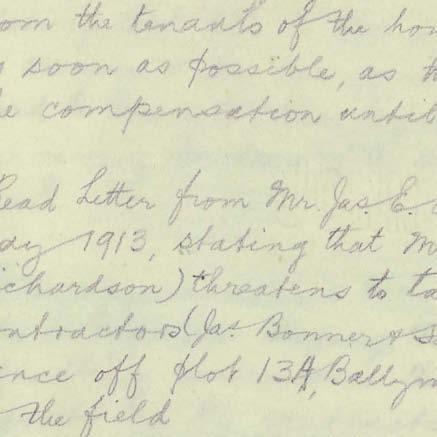 om the tenants of the ho
soon as possible, as t
e compensation until
ead Letter from Mr. Jas. E.
ay 1913, stating that M
ichardson) threatens to ta
ntractors (Jas. Bonner & S
ence off plot 13A, Ballym
the field